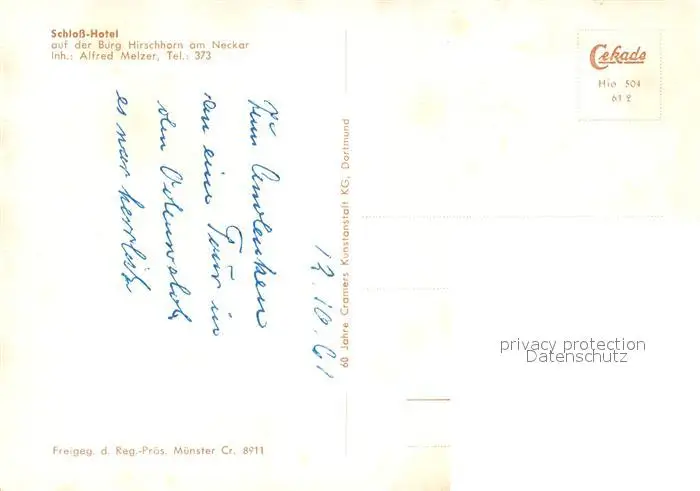 Schloß-Hotel
auf der Burg Hirschhorn am Neckar
Inh.: Alfred Melzer, Tel.: 373
Zum Andenken
an eine Tour in
den Odenwald
es war herrlich
12.10.61
60 Jahre Cramers Kunstanstalt KG, Dortmund
Cekade
Hio 504
61 2
privacy protection
Datenschutz
Freigeg. d. Reg.-Präs. Münster Cr. 8911